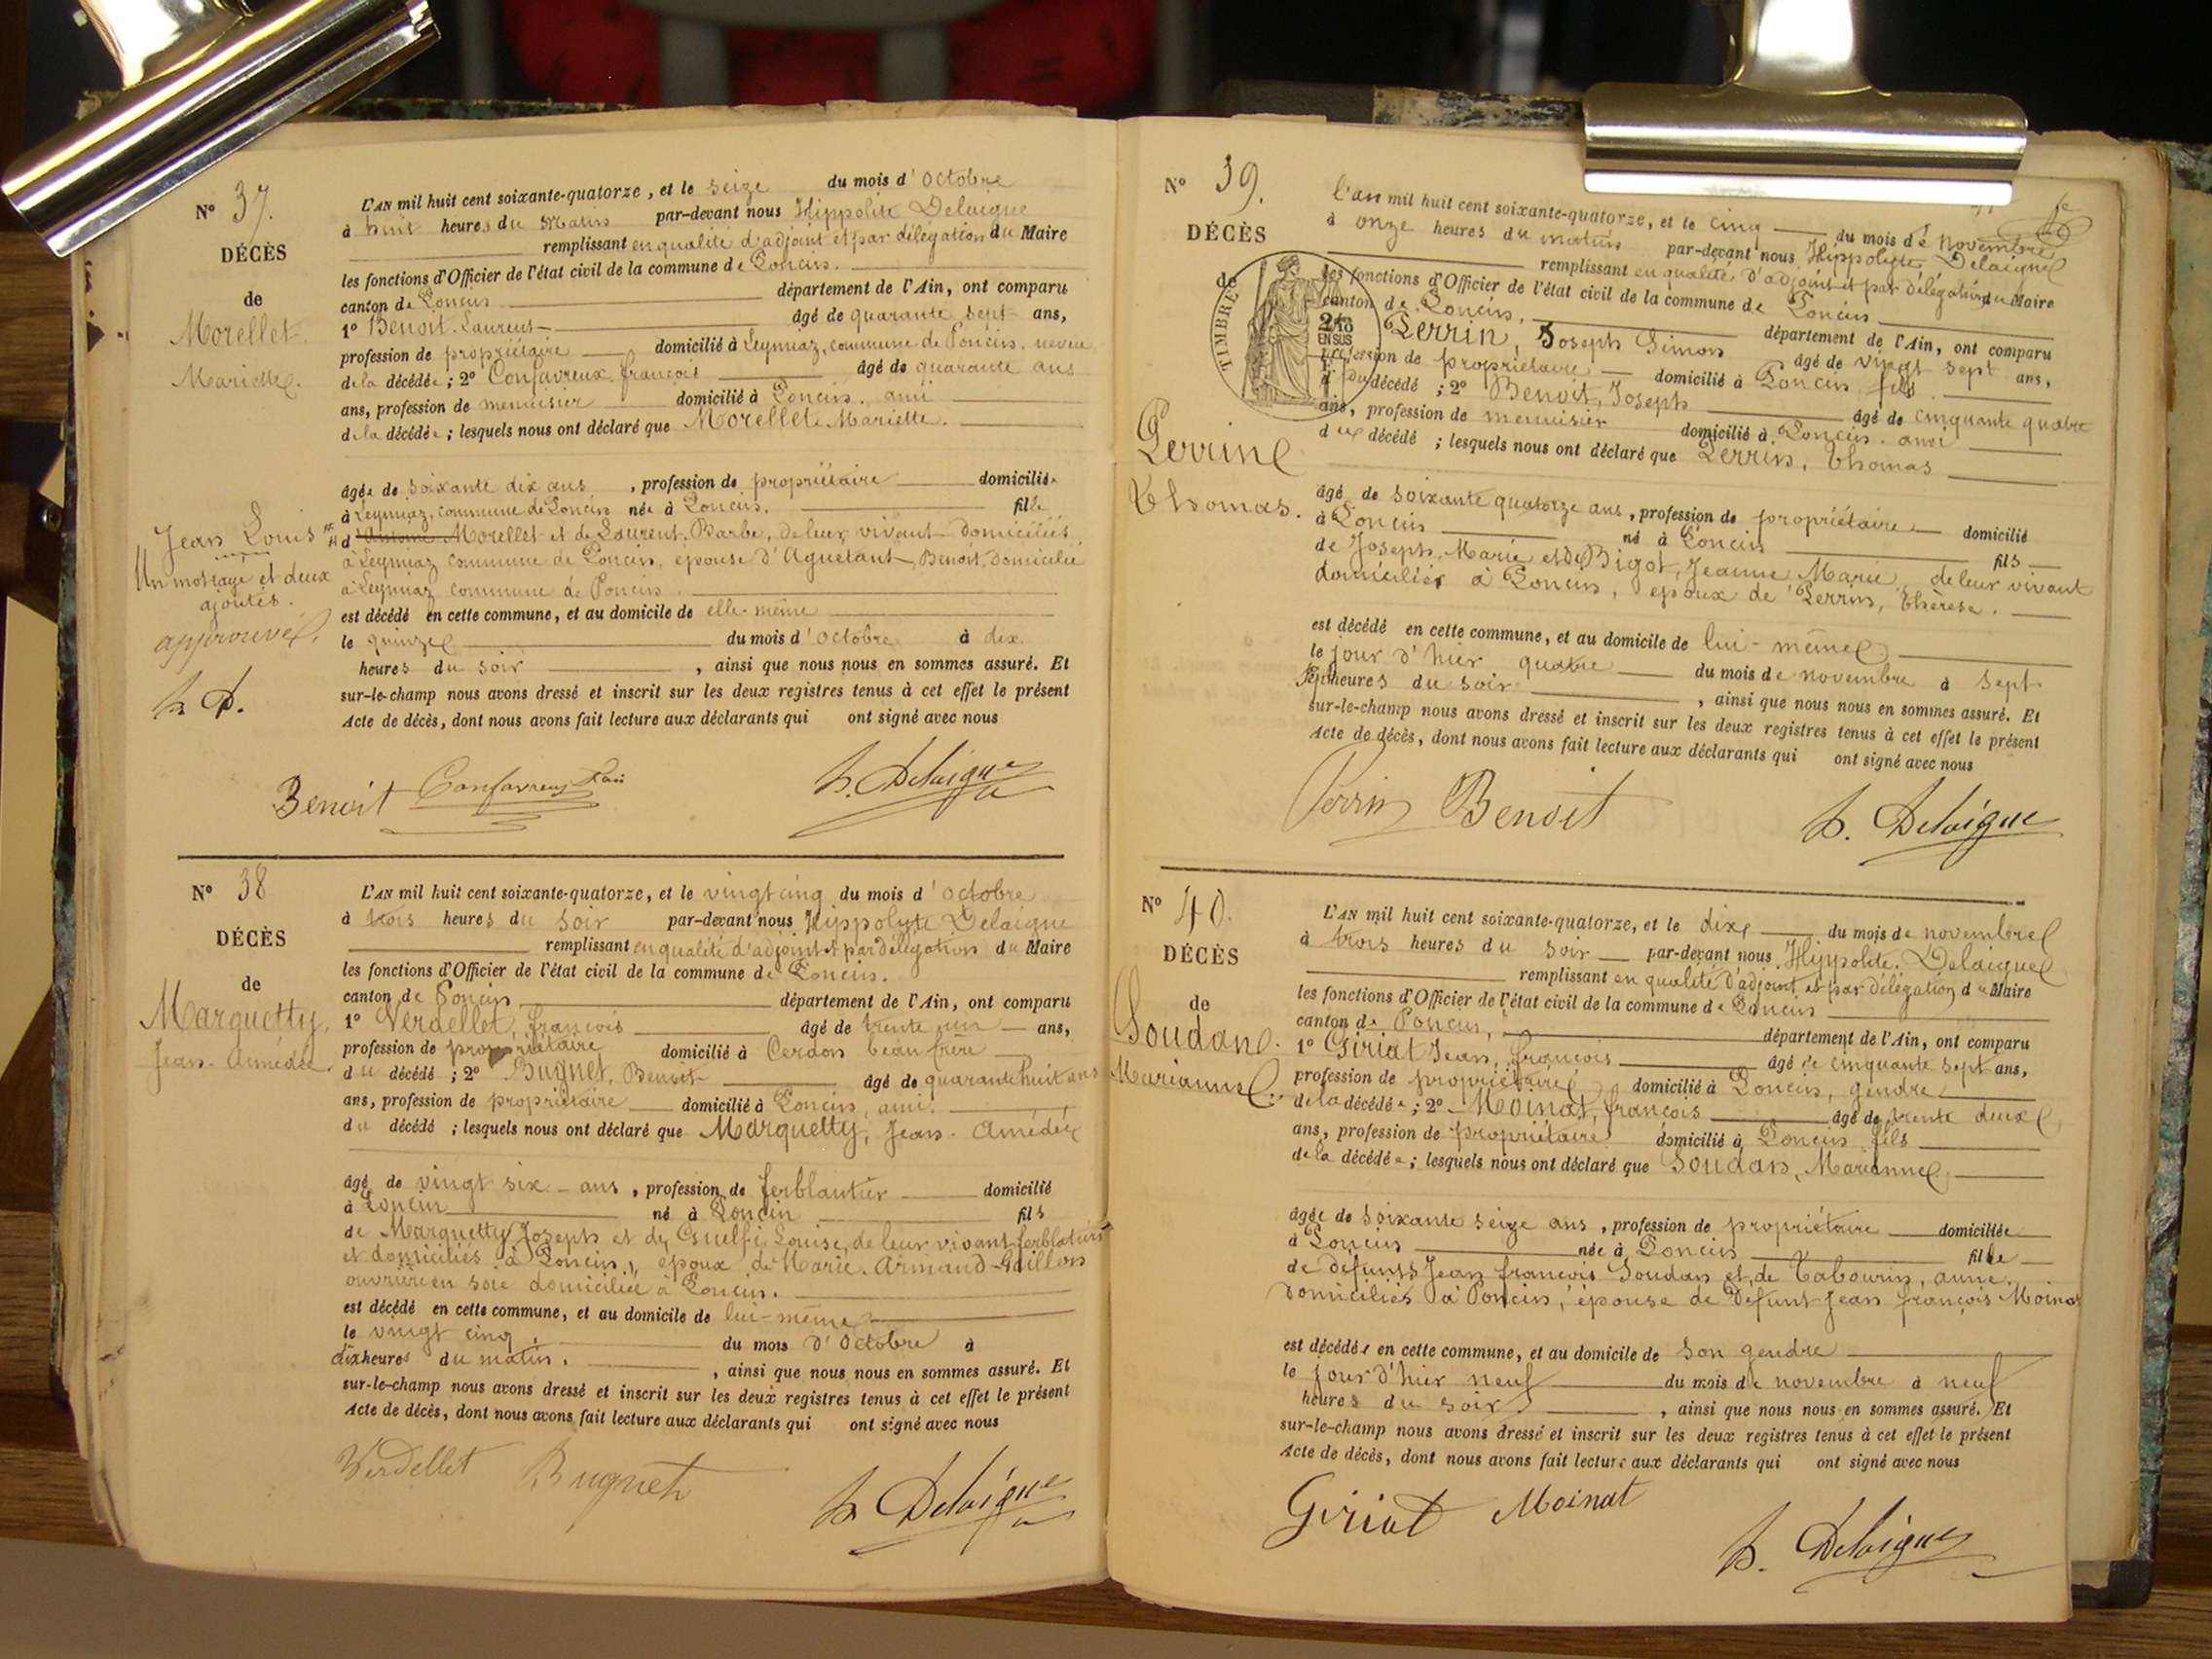 N° 37.
DÉCÈS
de
Morellet
Mariette.
L'AN mil huit cent soixante-quatorze, et le seize du mois d'octobre
à huit heures du matin par-devant nous Hippolite Delaigue
remplissant en qualité d'adjoint et par délégation du Maire
les fonctions d'Officier de l'état civil de la commune de Poncin.
canton de Poncin département de l'Ain, ont comparu
1° Benoit Laurent âgé de quarante sept ans,
profession de propriétaire domicilié à Leymiaz, commune de Poncin, neveu
de la décédée ; 2° Confavreux françois âgé de quarante ans
ans, profession de menuisier domicilié à Poncin. ami
de la décédée ; lesquels nous ont déclaré que Morellet Mariette.
âgée de soixante dix ans, profession de propriétaire domiciliée
à Leymiaz, commune de Poncin née à Poncin. fille
d'Antoine Morellet et de Laurent, Barbe, de leur vivant domiciliés
à Leymiaz commune de Poncin, épouse d'Aguetant Benoit, domicilié
à Leymiaz commune de Poncin
est décédé en cette commune, et au domicile de elle-même
le quinze du mois d'octobre à dix
heures du soir, ainsi que nous nous en sommes assuré. Et
sur-le-champ nous avons dressé et inscrit sur les deux registres tenus à cet effet le présent
Acte de décès, dont nous avons fait lecture aux déclarants qui ont signé avec nous
Jean Louis
Un mot rayé et deux
ajoutés.
approuvé.
h D.
Benoit Confavreux h. Delaigue
N° 38
DÉCÈS
de
Marquetty,
Jean-Amédée
L'AN mil huit cent soixante-quatorze, et le vingt cinq du mois d'octobre
à trois heures du soir par-devant nous Hippolyte Delaigue
remplissant en qualité d'adjoint et par délégation du Maire
les fonctions d'Officier de l'état civil de la commune de Poncin.
canton de Poncin département de l'Ain, ont comparu
1° Verdellet, françois âgé de trente un ans,
profession de propriétaire domicilié à Cerdon beau frère
du décédé ; 2° Buguet, Benoit âgé de quarante huit ans
ans, profession de propriétaire domicilié à Poncin, ami.
du décédé ; lesquels nous ont déclaré que Marquetty, Jean-Amédée
âgé de vingt six ans, profession de ferblantier domicilié
à Poncin né à Poncin fils
de Marquetty Joseph et de Guelfi Louise, de leur vivant ferblatiers
et domiciliés à Poncin, époux de Marie Armand-Gaillon
ouvrière en soie domiciliée à Poncin.
est décédé en cette commune, et au domicile de lui-même
le vingt cinq du mois d'Octobre à
dix heures du matin., ainsi que nous nous en sommes assuré. Et
sur-le-champ nous avons dressé et inscrit sur les deux registres tenus à cet effet le présent
Acte de décès, dont nous avons fait lecture aux déclarants qui ont signé avec nous
Verdellet Buguet h Delaigue
N° 39.
DÉCÈS
de
TIMBRE
2/10
EN SUS
Perrin
Thomas.
L'an mil huit cent soixante-quatorze, et le cinq du mois de novembre
à onze heures du matin par-devant nous Hippolyte Delaigue
remplissant en qualité d'adjoint et par délégation du Maire
les fonctions d'Officier de l'état civil de la commune de Poncin
canton de Poncin, département de l'Ain, ont comparu
Perrin, Joseph Simon âgé de vingt sept ans,
profession de propriétaire domicilié à Poncin fils
du décédé ; 2° Benoit, Joseph âgé de cinquante quatre
ans, profession de menuisier domicilié à Poncin. ami
du décédé ; lesquels nous ont déclaré que Perrin, Thomas
âgé de soixante quatorze ans, profession de propriétaire domicilié
à Poncin né à Poncin fils
de Joseph Marie et de Bigot, Jeanne Marie, de leur vivant
domiciliés à Poncin, époux de Perrin, Thérèse.
est décédé en cette commune, et au domicile de lui-même
le jour d'hier quatre du mois de novembre à sept
heures du soir, ainsi que nous nous en sommes assuré. Et
sur-le-champ nous avons dressé et inscrit sur les deux registres tenus à cet effet le présent
Acte de décès, dont nous avons fait lecture aux déclarants qui ont signé avec nous
Perrin Benoit h. Delaigue
N° 40.
DÉCÈS
de
Soudan.
Marianne.
L'AN mil huit cent soixante-quatorze, et le dix du mois de novembre
à trois heures du soir par-devant nous Hippolite Delaigue
remplissant en qualité d'adjoint et par délégation du Maire
les fonctions d'Officier de l'état civil de la commune de Poncin
canton de Poncin, département de l'Ain, ont comparu
1° Giriat Jean, françois âgé de cinquante sept ans,
profession de propriétaire domicilié à Poncin, gendre
de la décédée ; 2° Moinat, françois âgé de trente deux
ans, profession de propriétaire domicilié à Poncin fils
de la décédée ; lesquels nous ont déclaré que Soudan, Marianne
âgée de soixante seize ans, profession de propriétaire domiciliée
à Poncin née à Poncin fille
de défunts Jean françois Soudan et de Tabourin, anne,
domiciliés à Poncin, épouse de défunt Jean françois Moinat
est décédée en cette commune, et au domicile de son gendre
le jour d'hier neuf du mois de novembre à neuf
heures du soir, ainsi que nous nous en sommes assuré. Et
sur-le-champ nous avons dressé et inscrit sur les deux registres tenus à cet effet le présent
Acte de décès, dont nous avons fait lecture aux déclarants qui ont signé avec nous
Giriat Moinat h. Delaigue